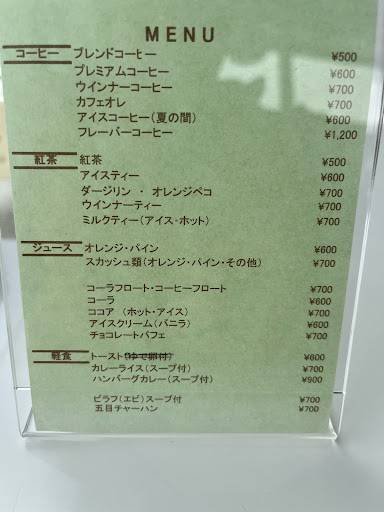 MENU
コーヒー ブレンドコーヒー ¥500
プレミアムコーヒー ¥600
ウインナーコーヒー ¥700
カフェオレ ¥700
アイスコーヒー(夏の間) ¥600
フレーバーコーヒー ¥1,200
紅茶 紅茶 ¥500
アイスティー ¥600
ダージリン ・ オレンジペコ ¥700
ウインナーティー ¥700
ミルクティー(アイス・ホット) ¥700
ジュース オレンジ・パイン ¥600
スカッシュ類(オレンジ・パイン・その他) ¥700
コーラフロート・コーヒーフロート ¥700
コーラ ¥600
ココア (ホット・アイス) ¥700
アイスクリーム(バニラ) ¥600
チョコレートパフェ ¥700
軽食 トースト(ゆで卵付) ¥600
カレーライス(スープ付) ¥700
ハンバーグカレー(スープ付) ¥900
ピラフ(エビ)スープ付 ¥700
五目チャーハン ¥700